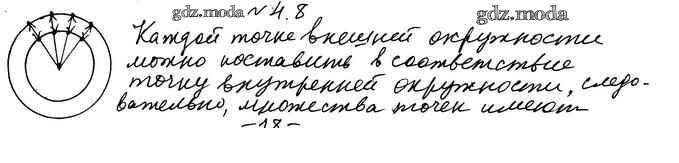 gdz.moda
№ 4.8
gdz.moda
Каждой точке внешней окружности
можно поставить в соответствие
точку внутренней окружности, следо-
вательно, множества точек имеют
-18-